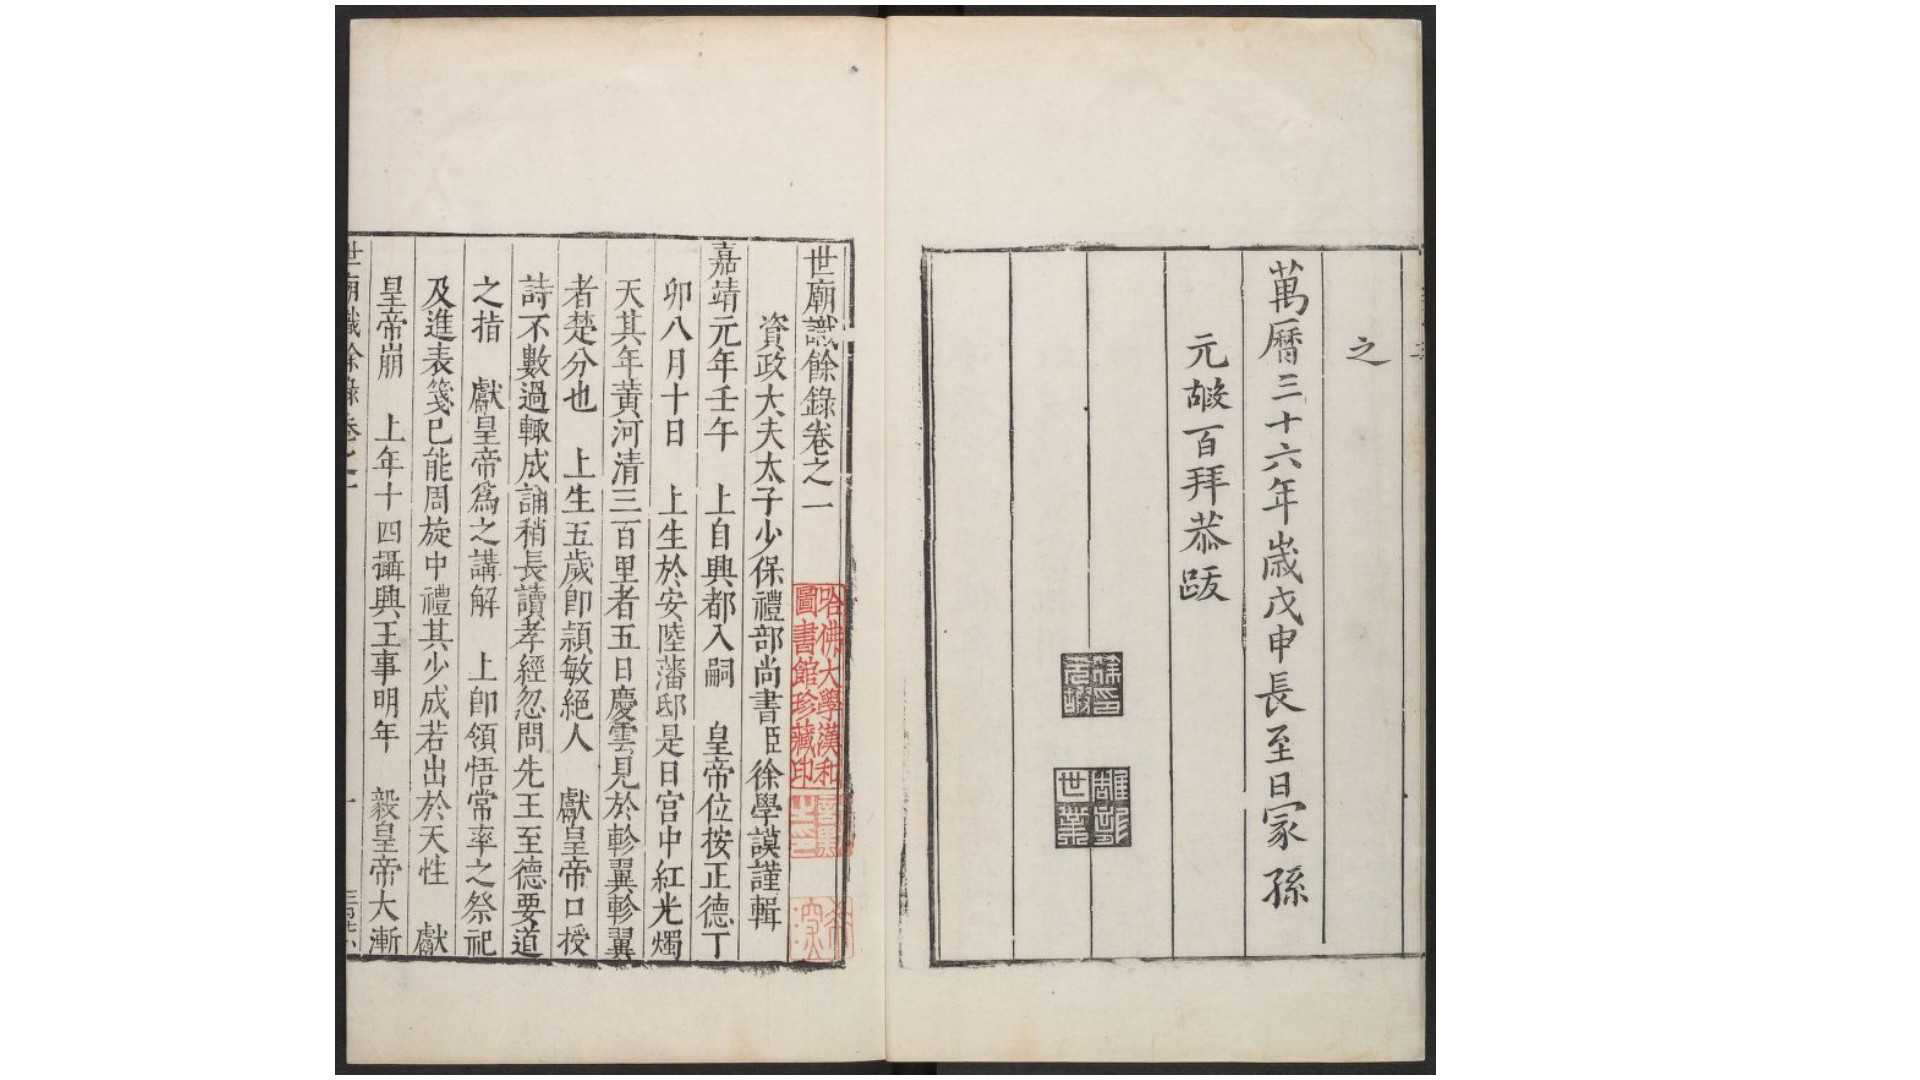 之
萬曆三十六年歲戊申長至日冢孫
元嘏百拜恭跋
徐印元嘏
世業
世廟識餘錄卷之一
哈佛大學漢和圖書館珍藏印
資政大夫太子少保禮部尚書臣徐學謨謹輯
嘉靖元年壬午　上自興都入嗣　皇帝位按正德丁
卯八月十日　上生於安陸藩邸是日宮中紅光燭
天其年黃河清三百里者五日慶雲見於軫翼軫翼
者楚分也　上生五歲卽穎敏絕人　獻皇帝口授
詩不數過輙成誦稍長讀孝經忽問先王至德要道
之指　獻皇帝爲之講解　上卽領悟常率之祭祀
及進表箋已能周旋中禮其少成若出於天性　獻
皇帝崩　上年十四攝興王事明年　毅皇帝大漸
世廟識餘錄卷之一